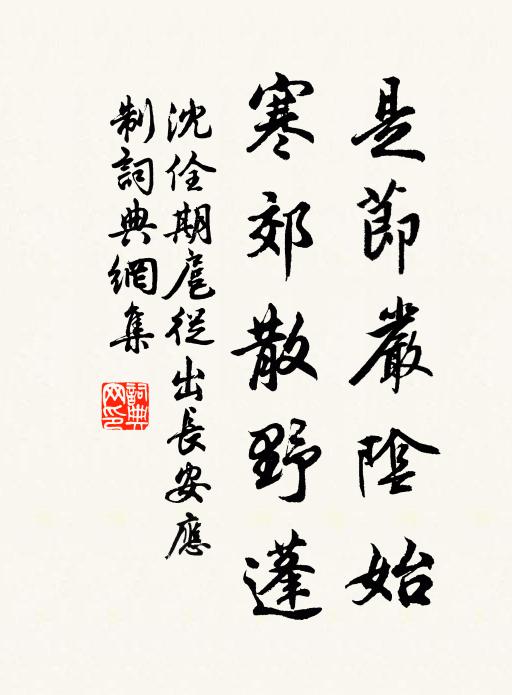 是節嚴陰始
寒郊散野蓬
沈佺期扈從出長安應
制詞典網集
詞典
网印